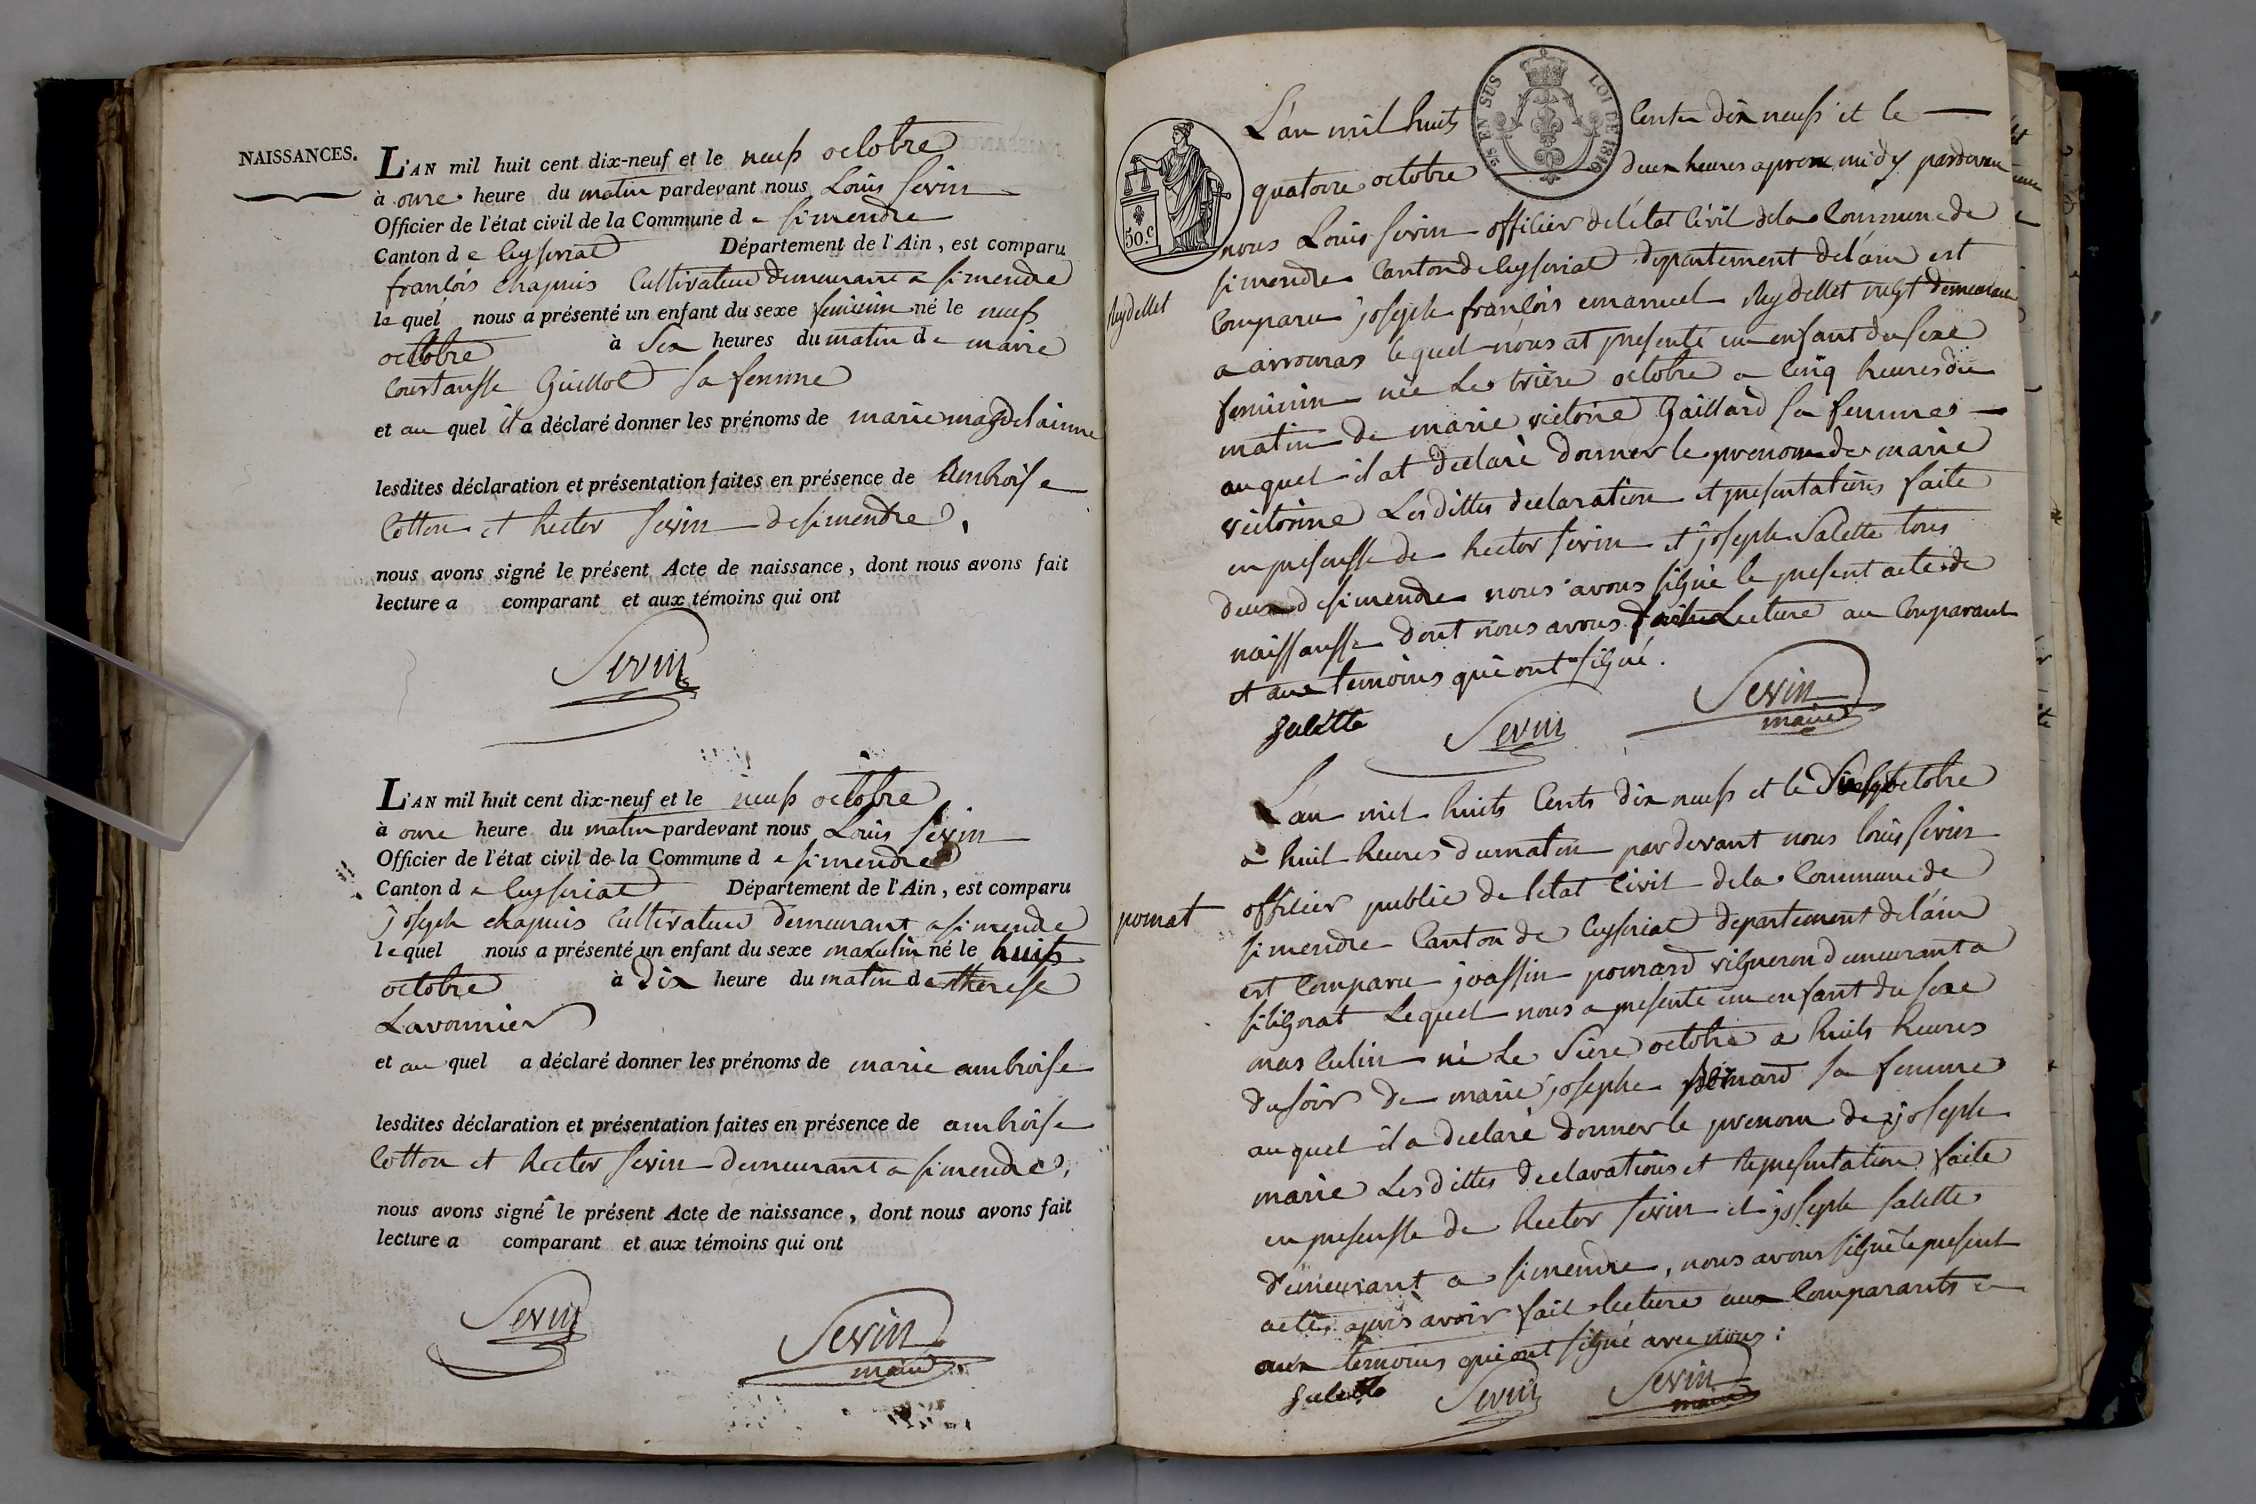 NAISSANCES.
L'AN mil huit cent dix-neuf et le neuf octobre
à onze heure du matin pardevant nous Louis Sevin
Officier de l'état civil de la Commune de simendre
Canton de Ceyseriat Département de l'Ain, est comparu
françois Chapuis Cultivateur Demeurant a simendre
lequel nous a présenté un enfant du sexe feminin né le neuf
octobre à Six heures du matin de marie
Coustansse Guillot sa femme
et au quel il a déclaré donner les prénoms de marie magdelainne
lesdites déclaration et présentation faites en présence de Ambroise
Cotton et hector Sevin de simendre,
nous avons signé le présent Acte de naissance, dont nous avons fait
lecture a comparant et aux témoins qui ont
Sevin
L'AN mil huit cent dix-neuf et le neuf octobre
à onze heure du matin pardevant nous Louis Sevin
Officier de l'état civil de la Commune de simendre
Canton de Ceyseriat Département de l'Ain, est comparu
joseph chapuis Cultivateur demeurant a simendre
lequel nous a présenté un enfant du sexe masculin né le huit
octobre à Dix heure du matin de therese
Lavonnier
et au quel a déclaré donner les prénoms de marie ambroise
lesdites déclaration et présentation faites en présence de ambroise
Cotton et hector Sevin demeurant a simendre,
nous avons signé le présent Acte de naissance, dont nous avons fait
lecture a comparant et aux témoins qui ont
Sevin
Sevin
maire
25 EN SUS LOI DE 1816
50.c
L'an mil huits Cents dix neuf et le
quatorze octobre deux heures apres midy pardevant
nous Louis Sevin officier de l'état Civil de la Commune de
simendre Canton de Ceyseriat departement de l'ain est
Reydellet
Comparu joseph françois emanuel Reydellet demeurant
a arromas lequel nous at presenté un enfant du sexe
feminin née le treize octobre a Cinq heures du
matin de marie victoire Gaillard sa femme
au quel il at declaré donner le prenom de marie
victorine Les dittes declaration et presentations faite
en presensse de hector Sevin et joseph Salette tous
deux de simendre nous avons signé le present acte de
naissansse dont nous avons faite Lecture au Comparant
et aux temoins qui ont signé.
Salette
Sevin
Sevin
maire
L'an mil huits Cents dix neuf et le octobre
a huit heures du matin pardevant nous louis Sevin
officier public de l'etat Civil de la Commune de
pomat
simendre Canton de Ceyseriat departement de l'ain
est Comparu joassin pomard vigneron demeurant a
silignat Lequel nous a presenté un enfant du sexe
masculin né le octobre a huits heures
du soir de marie josephe sa femme
au quel il a declaré donner le prenom de joseph
marie Les dittes declarations et representation faite
en presensse de hector Sevin et joseph salette
demeurant a simendre, nous avons signé le present
acte, apris avoir fait lecture aux Comparants e
aux temoins qui ont signé avec nous:
Salette
Sevin
Sevin
maire